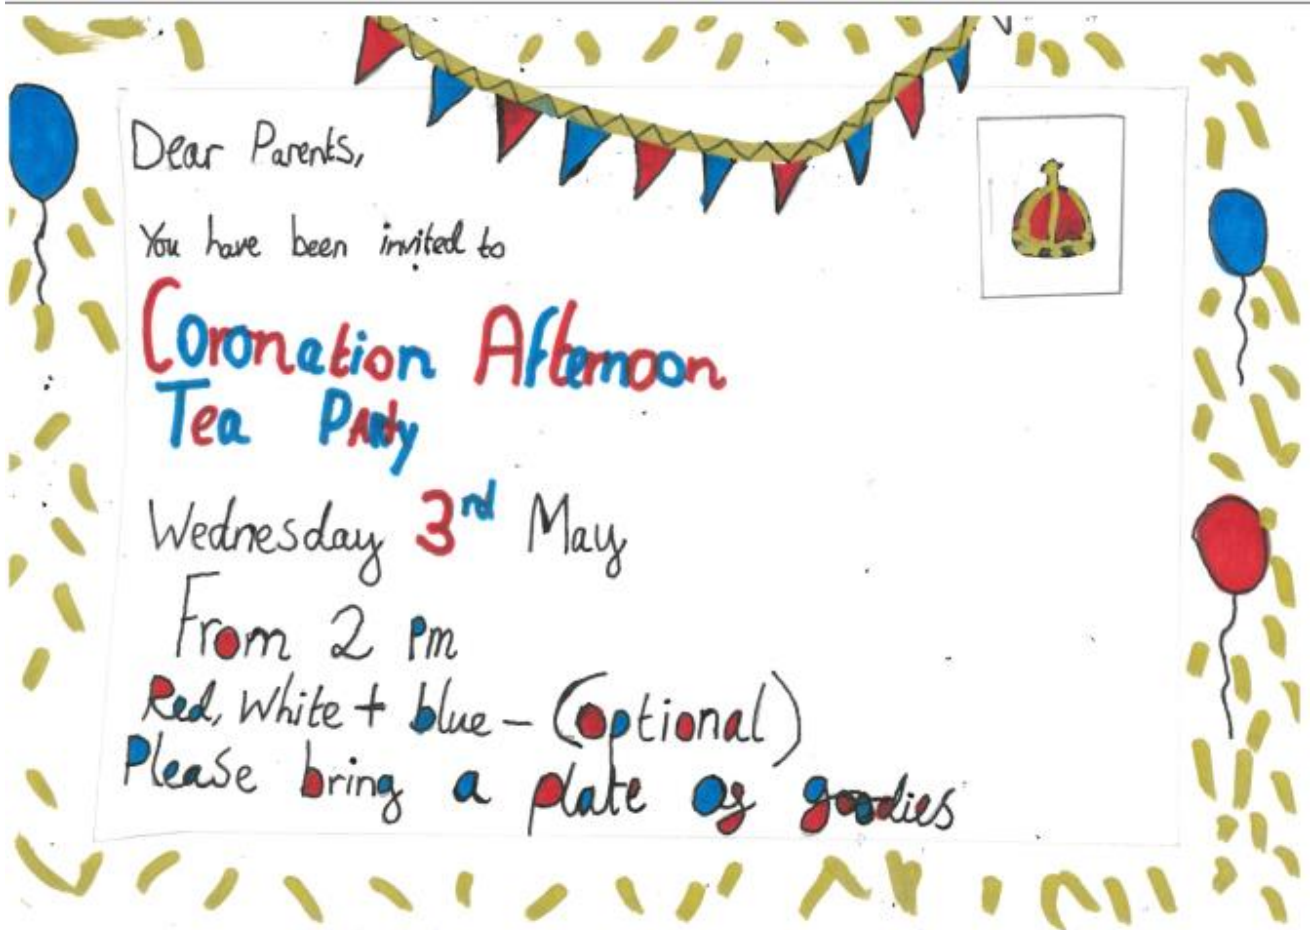 Dear Parents,
You have been invited to
Coronation Afternoon
Tea Party
Wednesday 3rd May
From 2 pm
Red, White + blue - (optional)
Please bring a plate of goodies